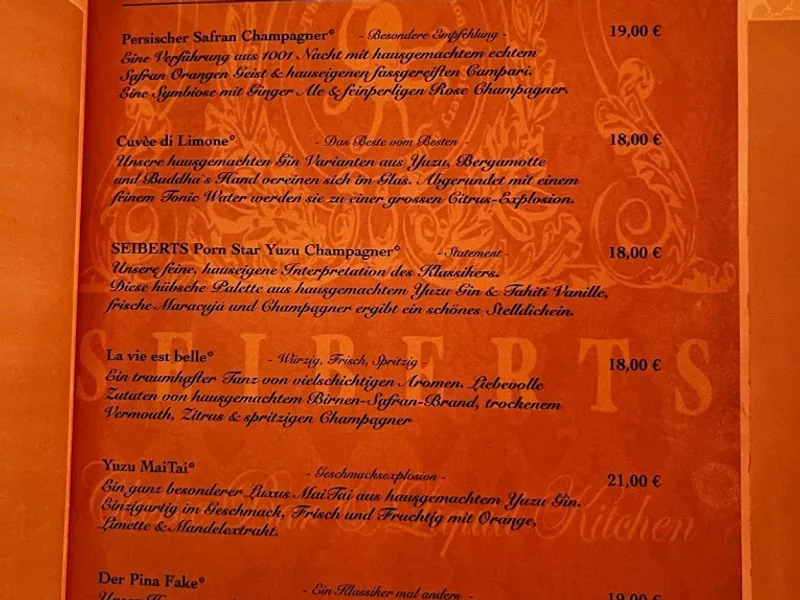 Persischer Safran Champagner* - Besondere Empfehlung - 19,00 €
Eine Verführung aus 1001 Nacht mit hausgemachtem echtem
Safran Orangen Geist & hauseigenen fassgereiften Campari.
Eine Symbiose mit Ginger Ale & feinperligen Rose Champagner.
Cuvèe di Limone* - Das Beste vom Besten - 18,00 €
Unsere hausgemachten Gin Varianten aus Yuzu, Bergamotte
und Buddha`s Hand vereinen sich im Glas. Abgerundet mit einem
feinem Tonic Water werden sie zu einer grossen Citrus-Explosion.
SEIBERTS Porn Star Yuzu Champagner* - Statement - 18,00 €
Unsere feine, hauseigene Interpretation des Klassikers.
Diese hübsche Palette aus hausgemachtem Yuzu Gin & Tahiti Vanille,
frische Maracujá und Champagner ergibt ein schönes Stelldichein.
La vie est belle* - Würzig, Frisch, Spritzig - 18,00 €
SEIBERTS
Ein traumhafter Tanz von vielschichtigen Aromen. Liebevolle
Zutaten von hausgemachtem Birnen-Safran-Brand, trockenem
Vermouth, Zitrus & spritzigen Champagner
Yuzu MaiTai* - Geschmacksexplosion - 21,00 €
Ein ganz besonderer Luxus MaiTai aus hausgemachtem Yuzu Gin.
Einzigartig im Geschmack, Frisch und Fruchtig mit Orange,
Limette & Mandelextrakt.
Liquid Kitchen
Der Pina Fake* - Ein Klassiker mal anders - 19,00 €